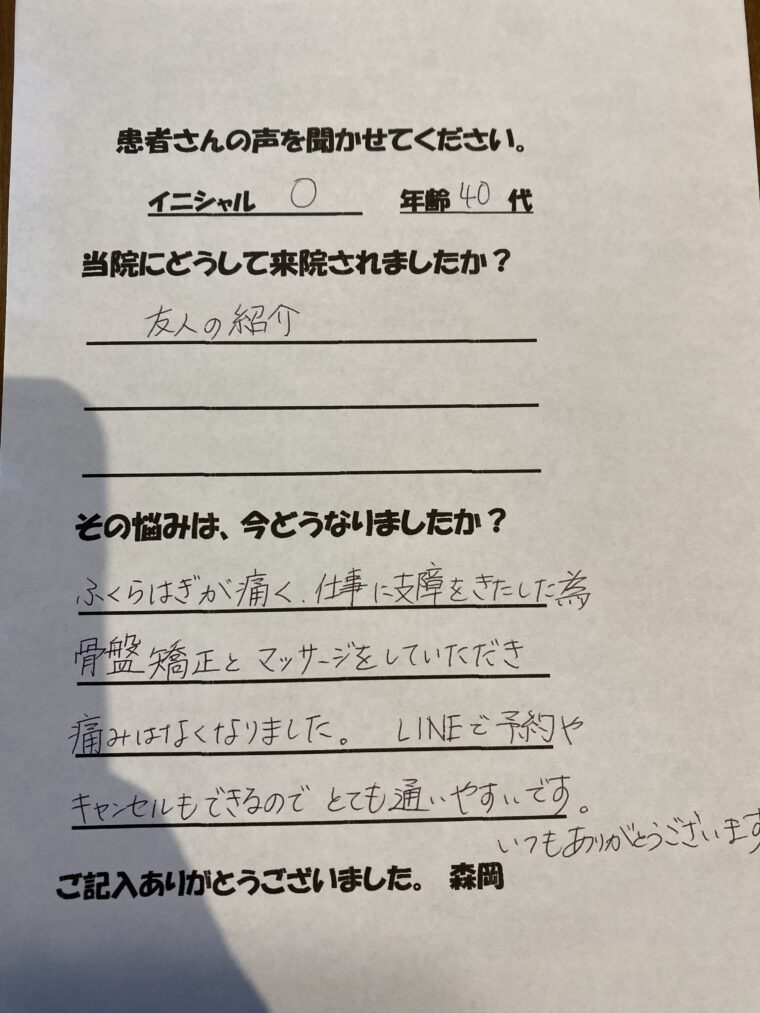 患者さんの声を聞かせてください。
イニシャル O 年齢 40 代
当院にどうして来院されましたか？
友人の紹介
その悩みは、今どうなりましたか？
ふくらはぎが痛く、仕事に支障をきたした為
骨盤矯正とマッサージをしていただき
痛みはなくなりました。 LINEで予約や
キャンセルもできるので とても通いやすいです。
いつもありがとうございます
ご記入ありがとうございました。 森岡